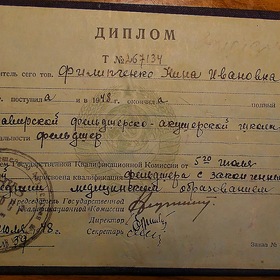 ДИПЛОМ
Т № 267134
итель сего тов. Филипченко Нина Ивановна
поступила в 1948 окончила полный
фельдшерско-акушерской школы
альности фельдшер
Государственной Квалификационной Комиссии от 5го июля
присвоена квалификация фельдшера с законченным
средним медицинским образованием
Председатель Государственной
Квалификационной Комиссии
Директор
Секретарь
июля 48 г.
39
Заказ №